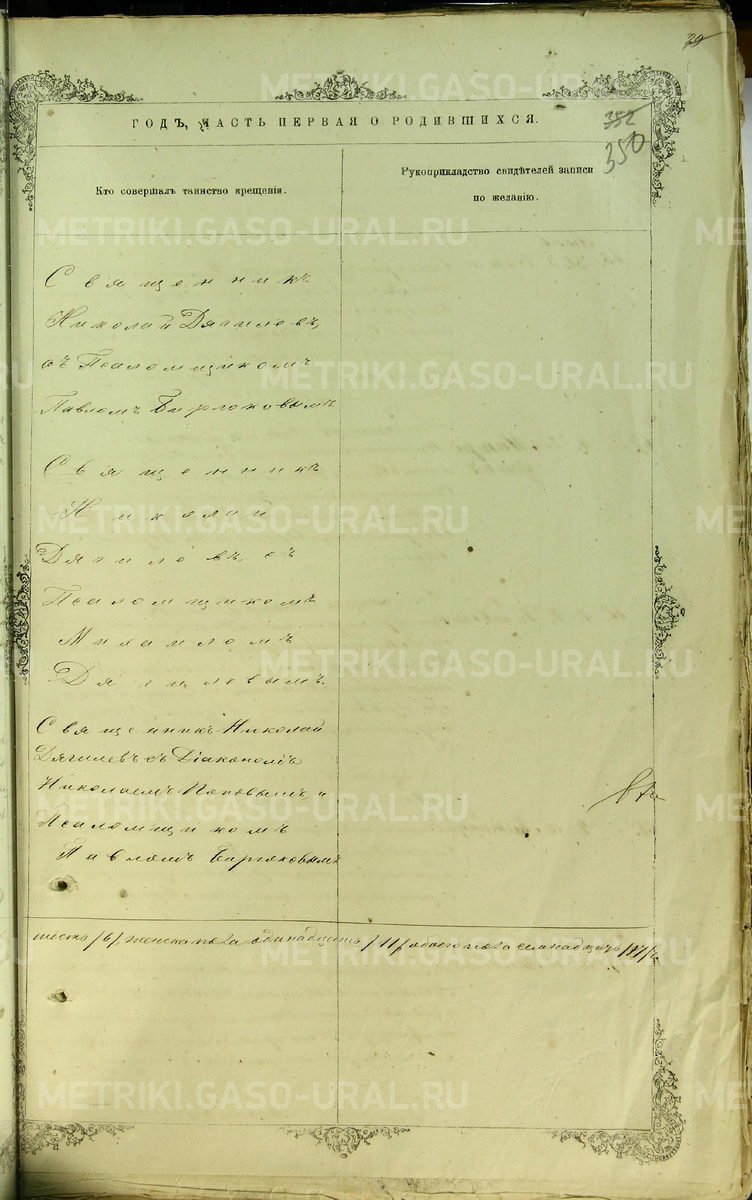 39
ГОДЪ, ЧАСТЬ ПЕРВАЯ О РОДИВШИХСЯ.
352
350
Кто совершалъ таинство крещенія.
Рукоприкладство свидѣтелей записи
по желанію.
Священникъ
Николай Дягилевъ,
съ Псаломщикомъ
Павломъ Бирюковымъ
Священникъ
Николай
Дягилевъ, съ
Псаломщикомъ
Михаиломъ
Дягилевымъ.
Священникъ Николай
Дягилевъ съ Діакономъ
Николаемъ Поповымъ и
Псаломщикомъ
Павломъ Бирюковымъ
шесть /6/ женска пола одинадцать /11/ обоего пола семнадцать /17/
METRIKI.GASO-URAL.RU